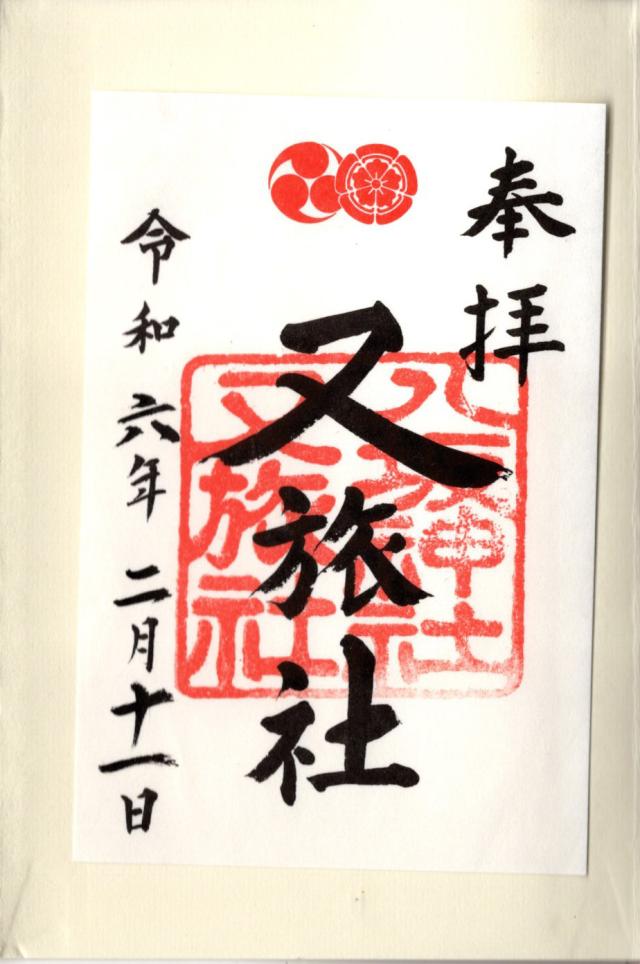 奉拝
又旅社
八坂神社
又旅社
令和六年二月十一日